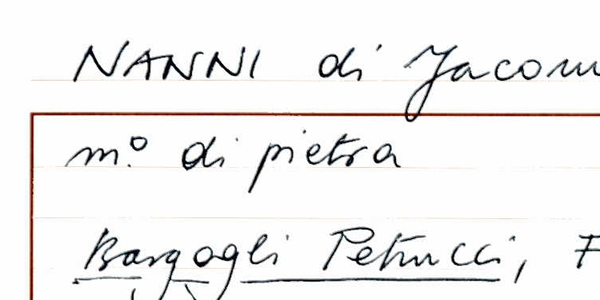 NANNI di Jacom
m.º di pietra
Bargagli Petrucci, F